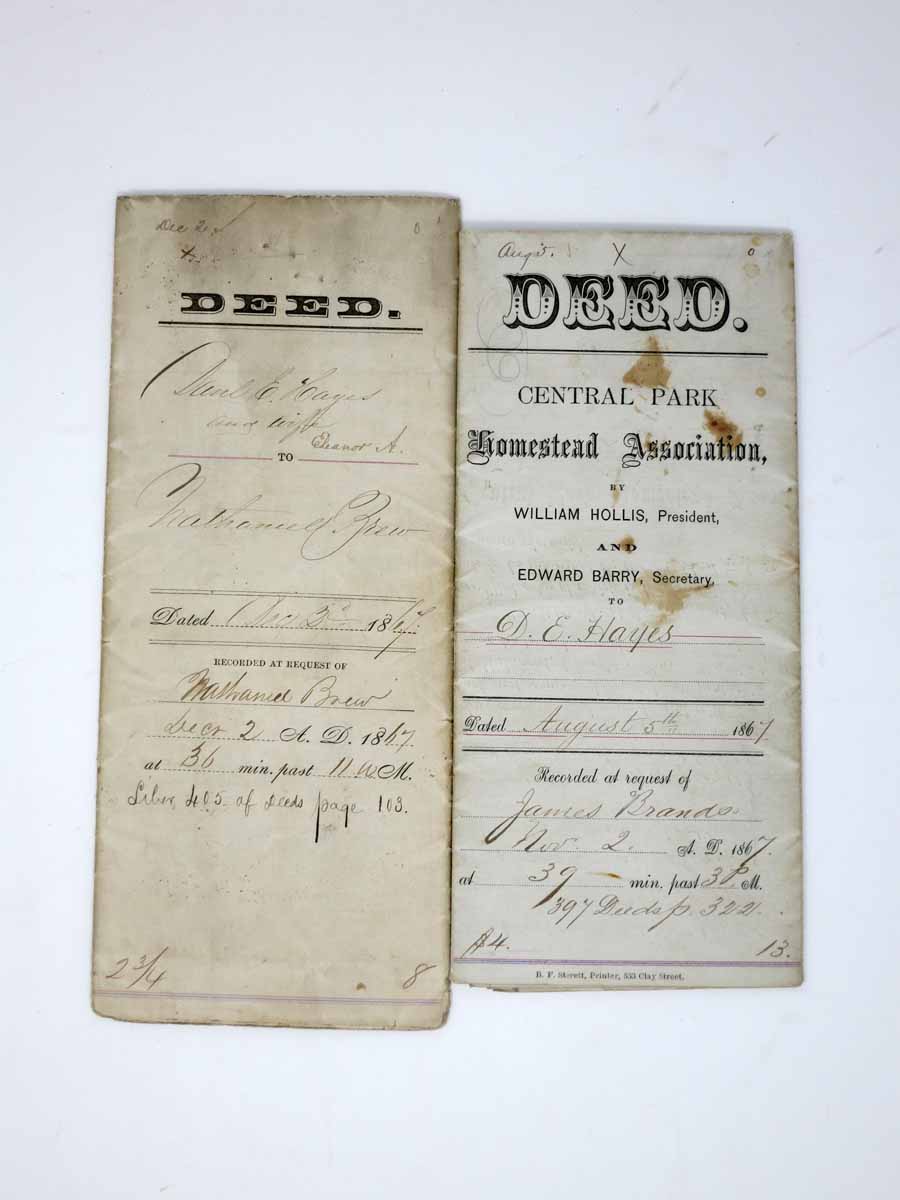 Dec 2
x
0
DEED.
E. Hayes
and wife
Eleanor A.
TO
Nathaniel Brew
Dated Dec 2d 1867.
RECORDED AT REQUEST OF
Nathaniel Brew
Decr 2 A. D. 1867.
at 36 min. past 11 a M.
Liber 405 of Deeds page 103.
2 3/4 8
Aug 5. X 0
DEED.
CENTRAL PARK
Homestead Association,
BY
WILLIAM HOLLIS, President,
AND
EDWARD BARRY, Secretary,
TO
D. E. Hayes
Dated August 5th 1867
Recorded at request of
James Brands.
Nov. 2. A. D. 1867.
at 39 min. past 3 P. M.
397 Deeds p. 322.
$4. 13.
B. F. Sterett, Printer, 533 Clay Street.